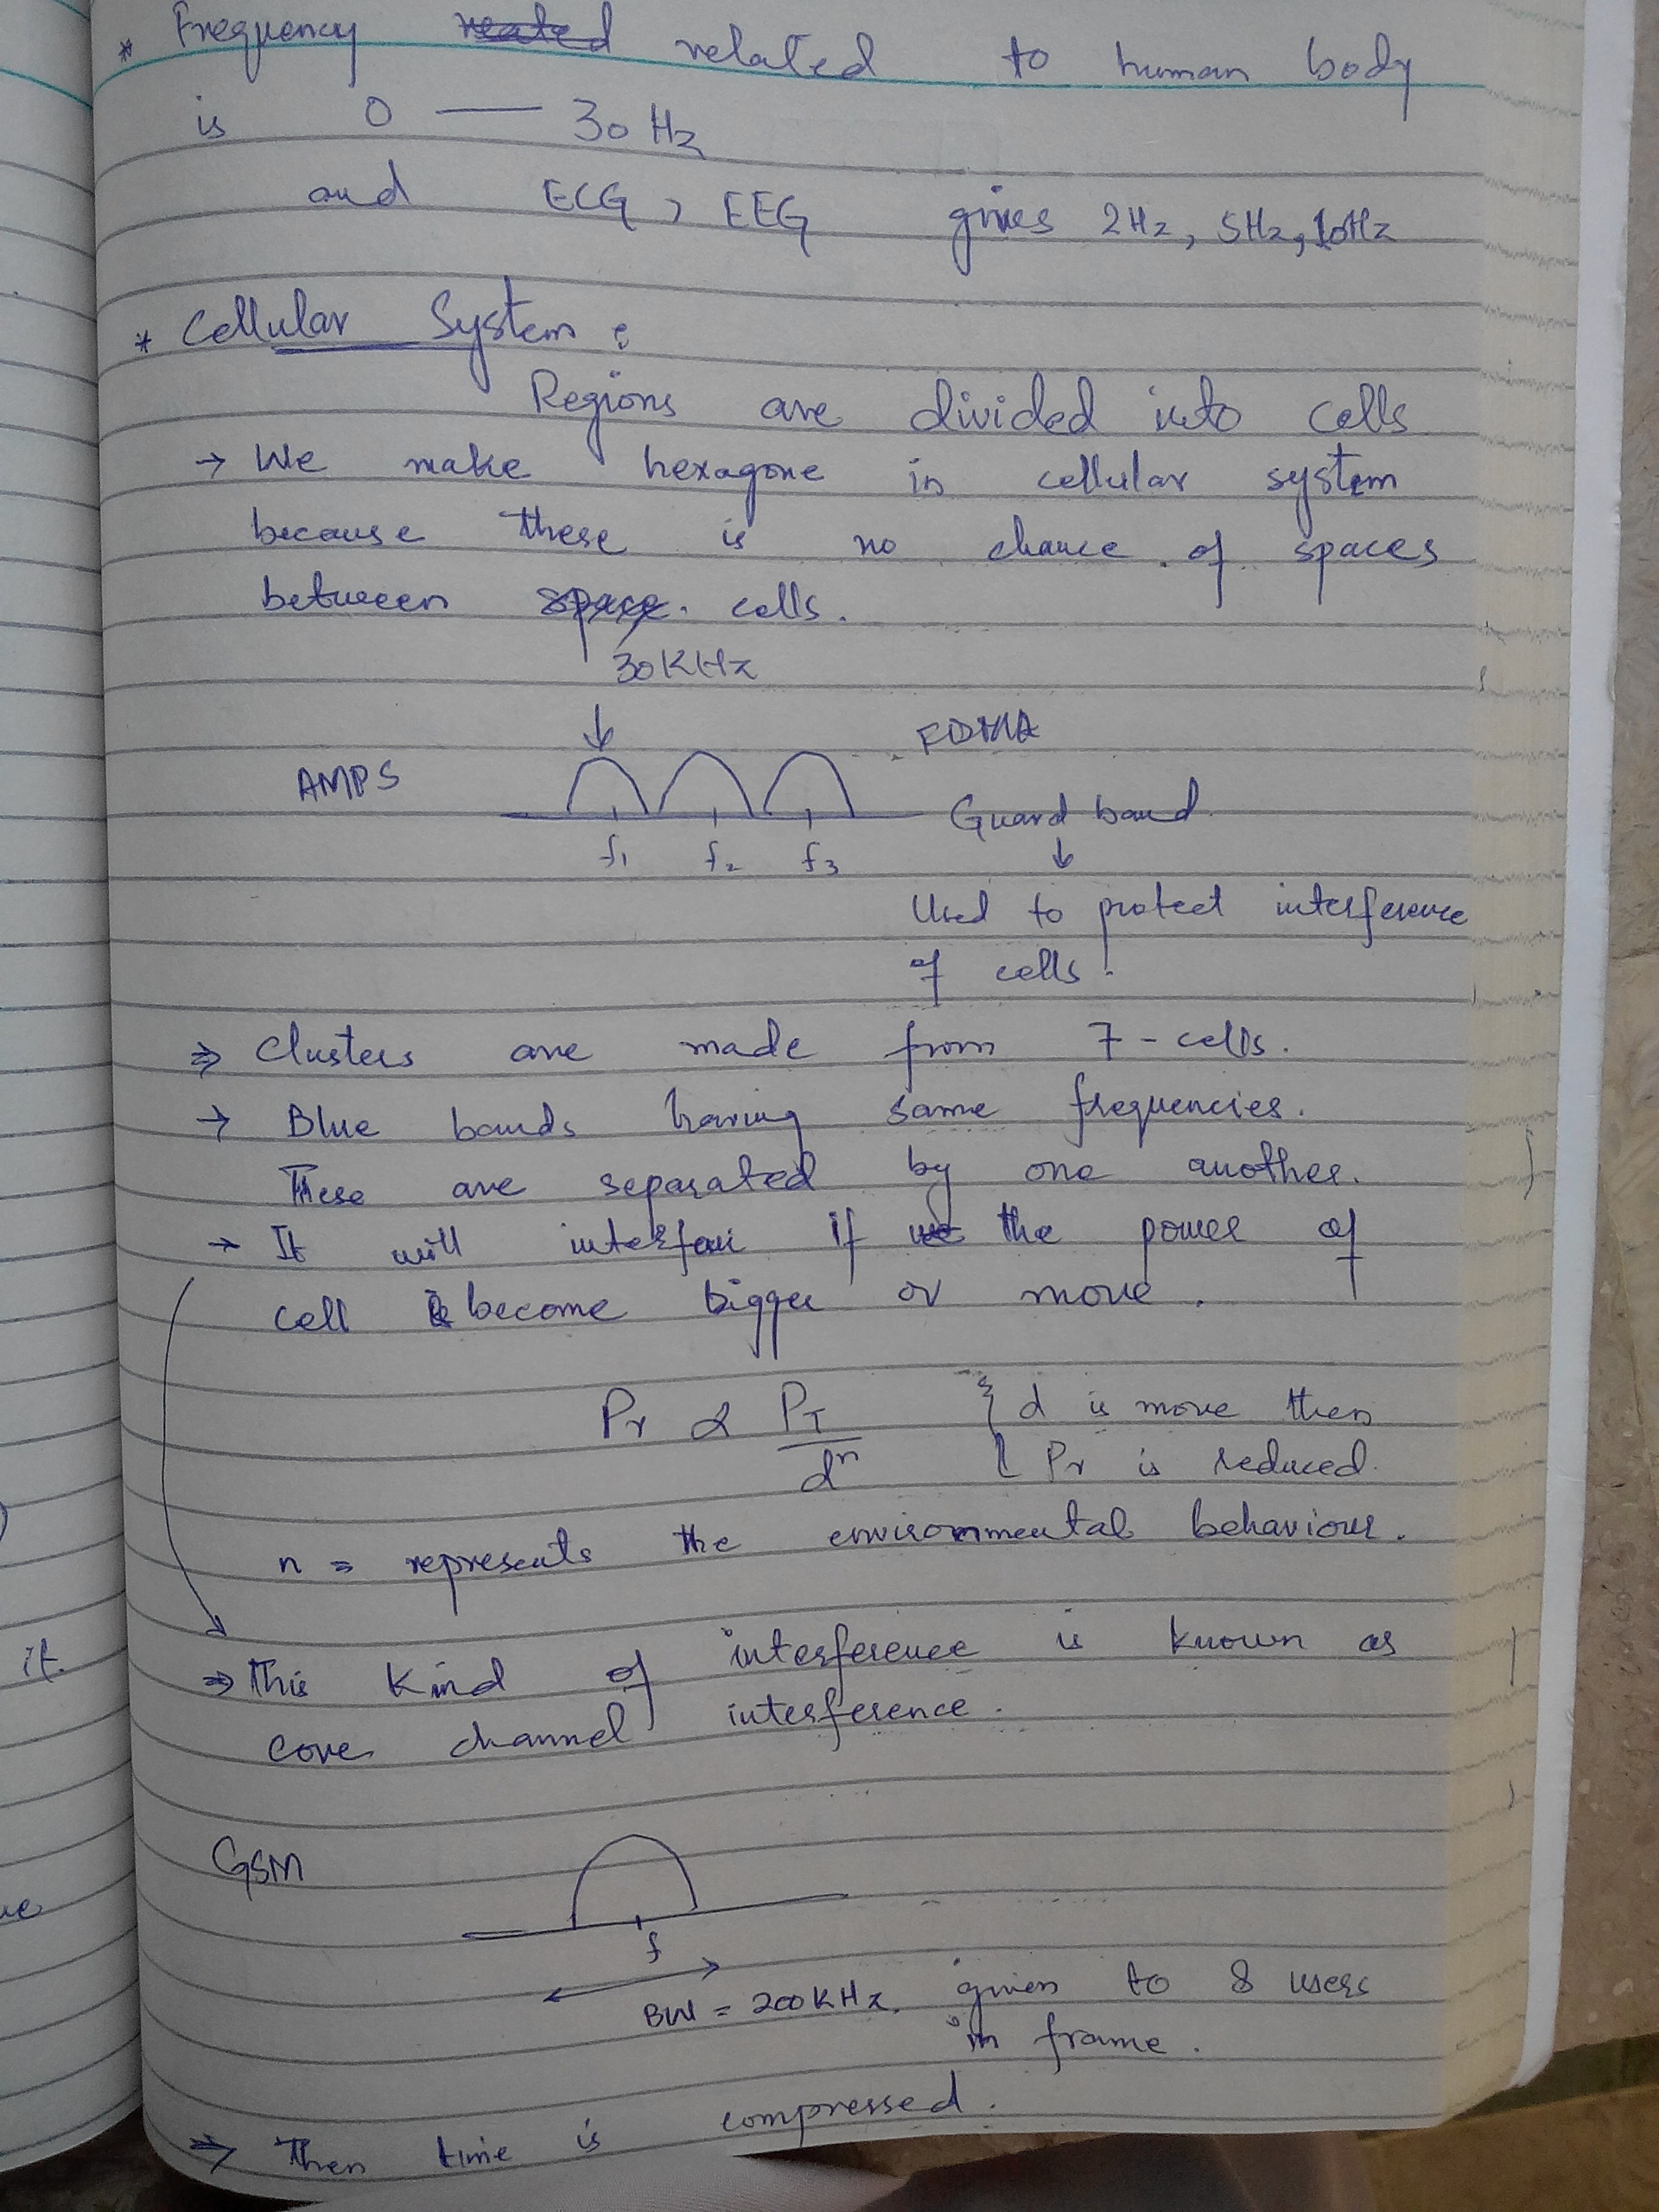 * Frequency related to human body
is 0 — 30 Hz
and ECG, EEG gives 2Hz, 5Hz, 10Hz
* Cellular System :
Regions are divided into cells
→ We make hexagone in cellular system
because these is no chance of spaces
between cells.
30KHz
AMPS
FDMA
f1 f2 f3
Guard band
↓
Used to protect interference
of cells.
⇒ Clusters are made from 7-cells.
→ Blue bands having same frequencies.
These are separated by one another.
→ It will interfair if the power of
cell become bigger or move.
Pr α PT/d^n { d is move then
Pr is reduced.
n = represents the environmental behaviour.
⇒ This kind of interference is known as
cove channel interference.
GSM
f
BW = 200KHz. given to 8 users
in frame.
⇒ Then time is compressed.
it.